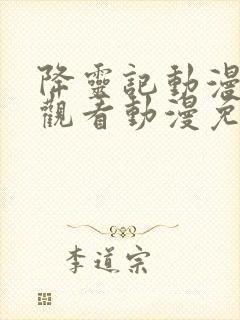 降靈記動漫
觀看動漫免
李道宗